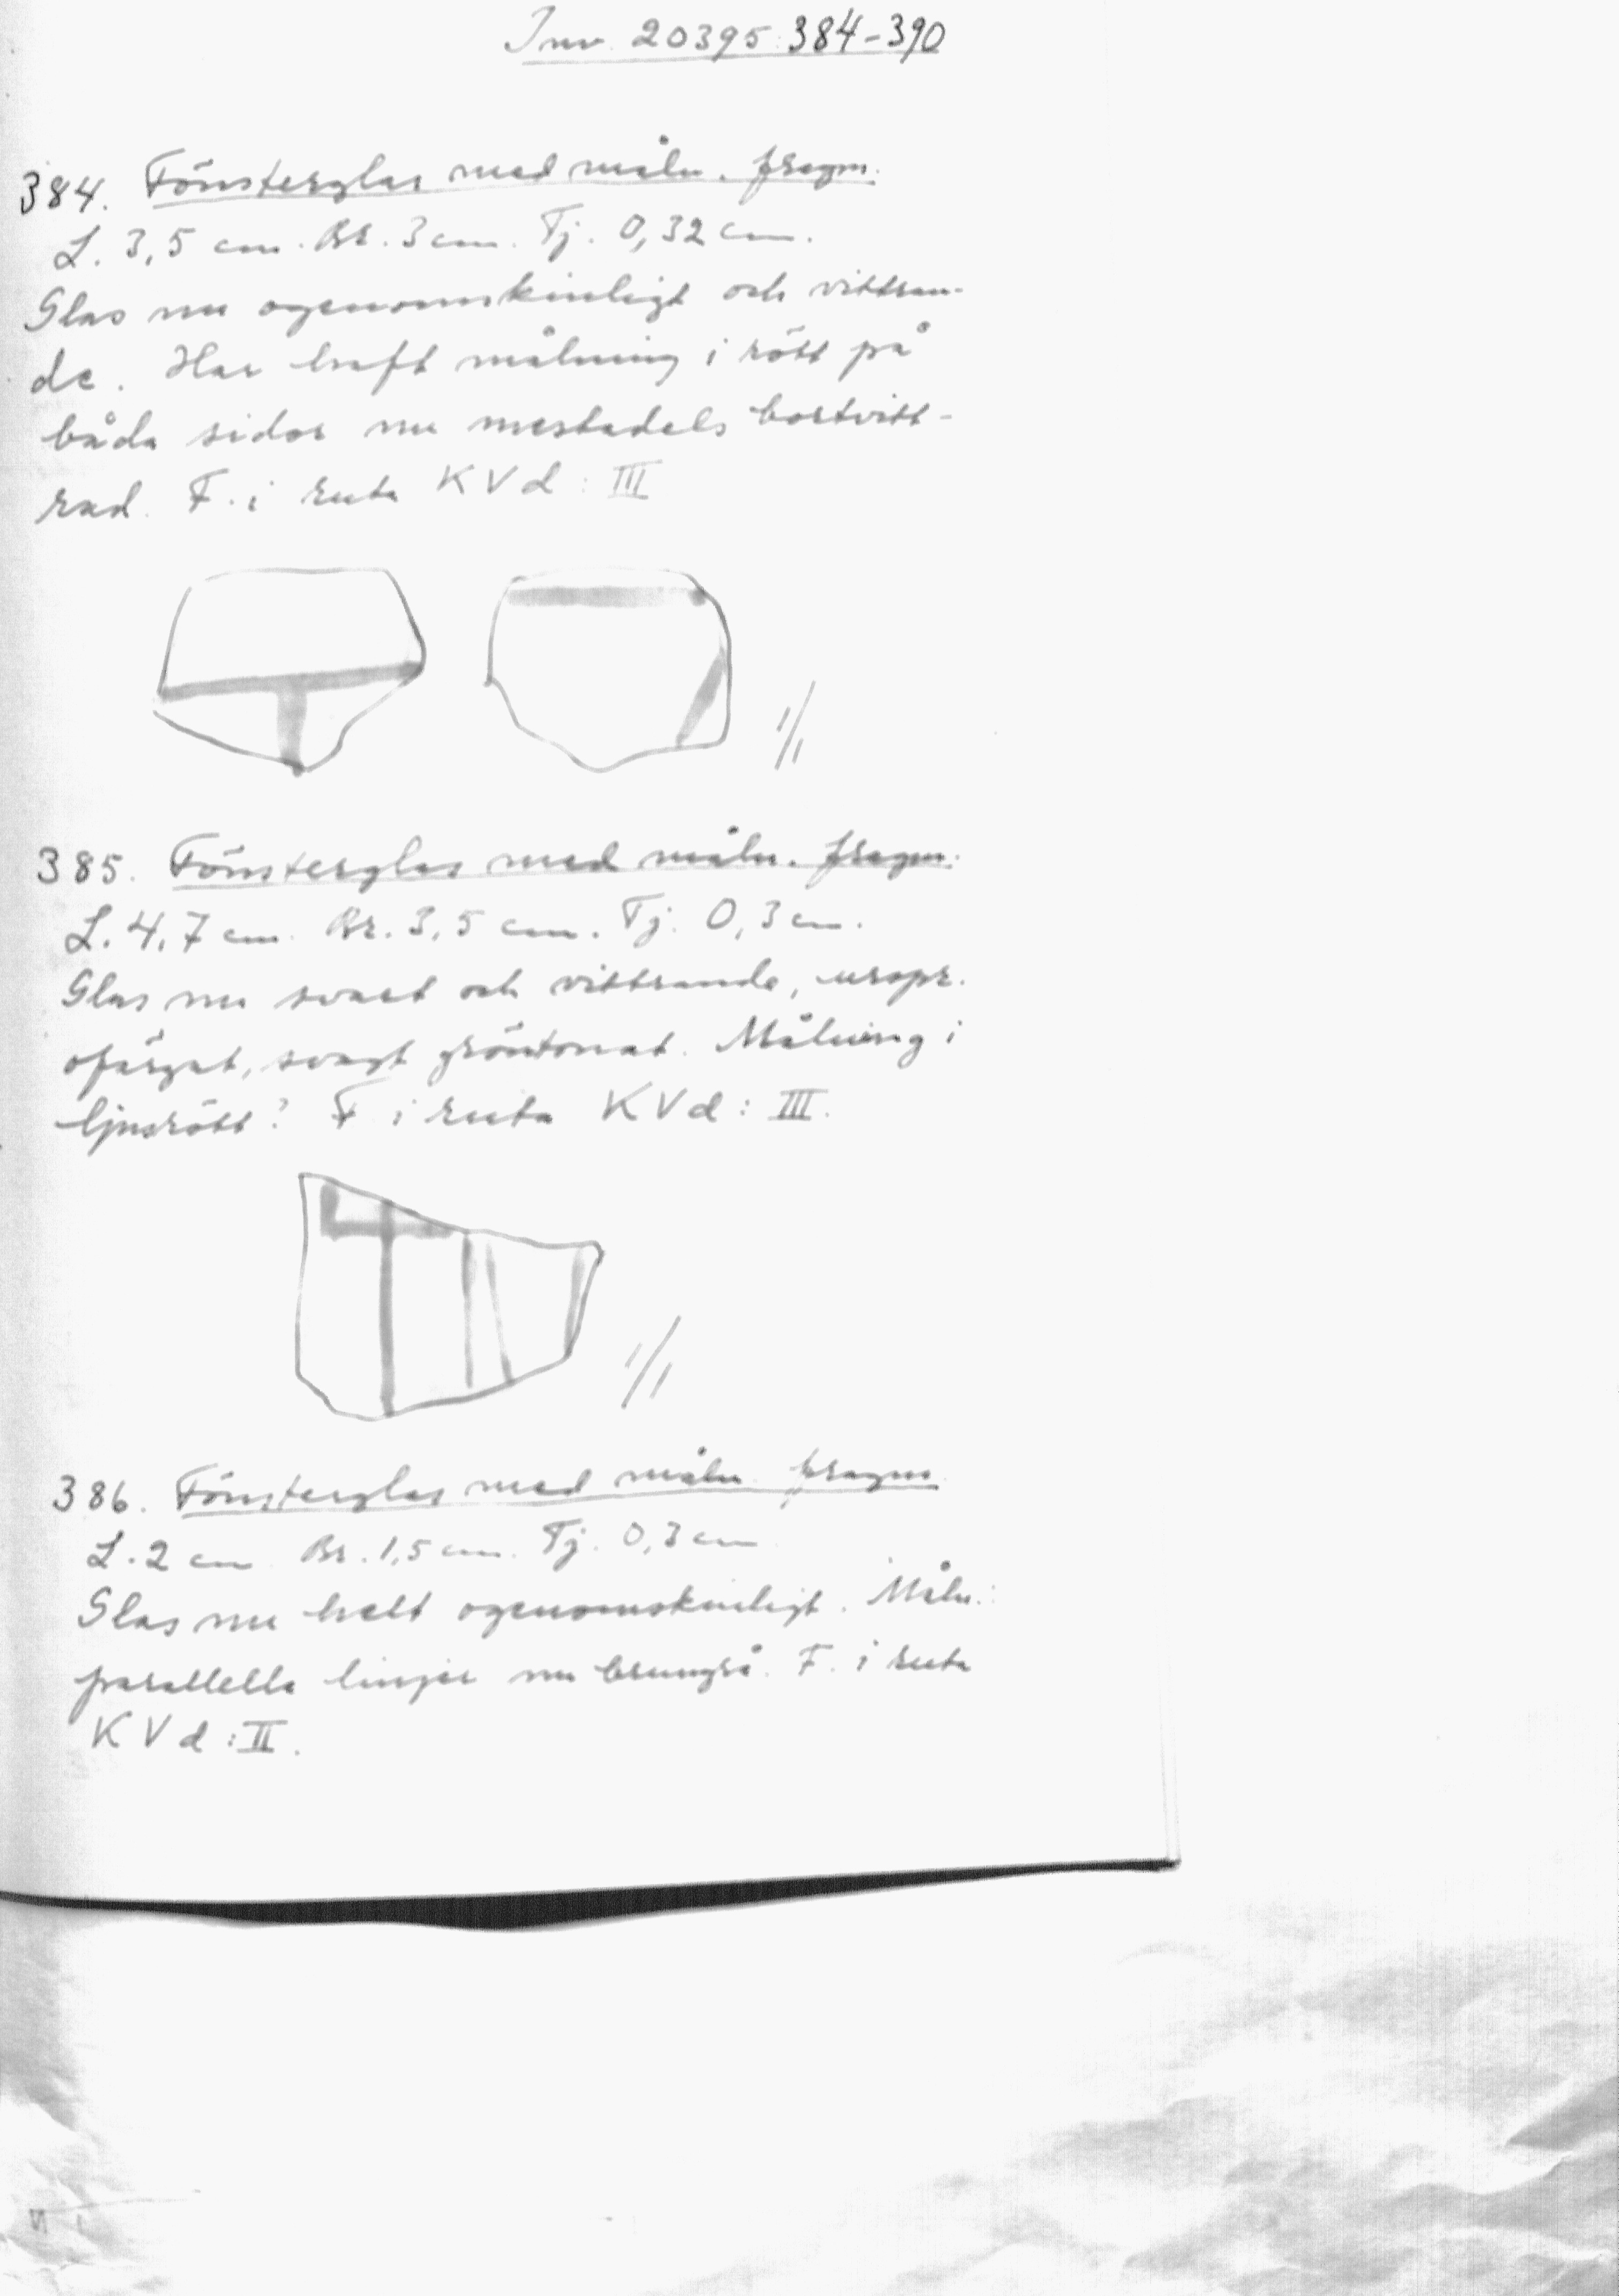 Inv. 20395:384-390
384. Fönsterglas med måln. fragm.
L. 3,5 cm. Br. 3 cm. Tj. 0,32 cm.
Glas nu ogenomskinligt och vittran-
de. Har haft målning i rött på
båda sidor nu mestadels bortvitt-
rad. F. i ruta KVd: III
1/1
385. Fönsterglas med måln. fragm.
L. 4,7 cm. Br. 3,5 cm. Tj. 0,3 cm.
Glas nu svart och vittrande, urspr.
ofärgat, svagt gröntonat. Målning i
ljusrött? F i ruta KVd: III.
1/1
386. Fönsterglas med måln. fragm.
L. 2 cm Br. 1,5 cm. Tj. 0,3 cm
Glas nu helt ogenomskinligt. Måln.:
parallella linjer nu brungrå. F. i ruta
KVd: II.